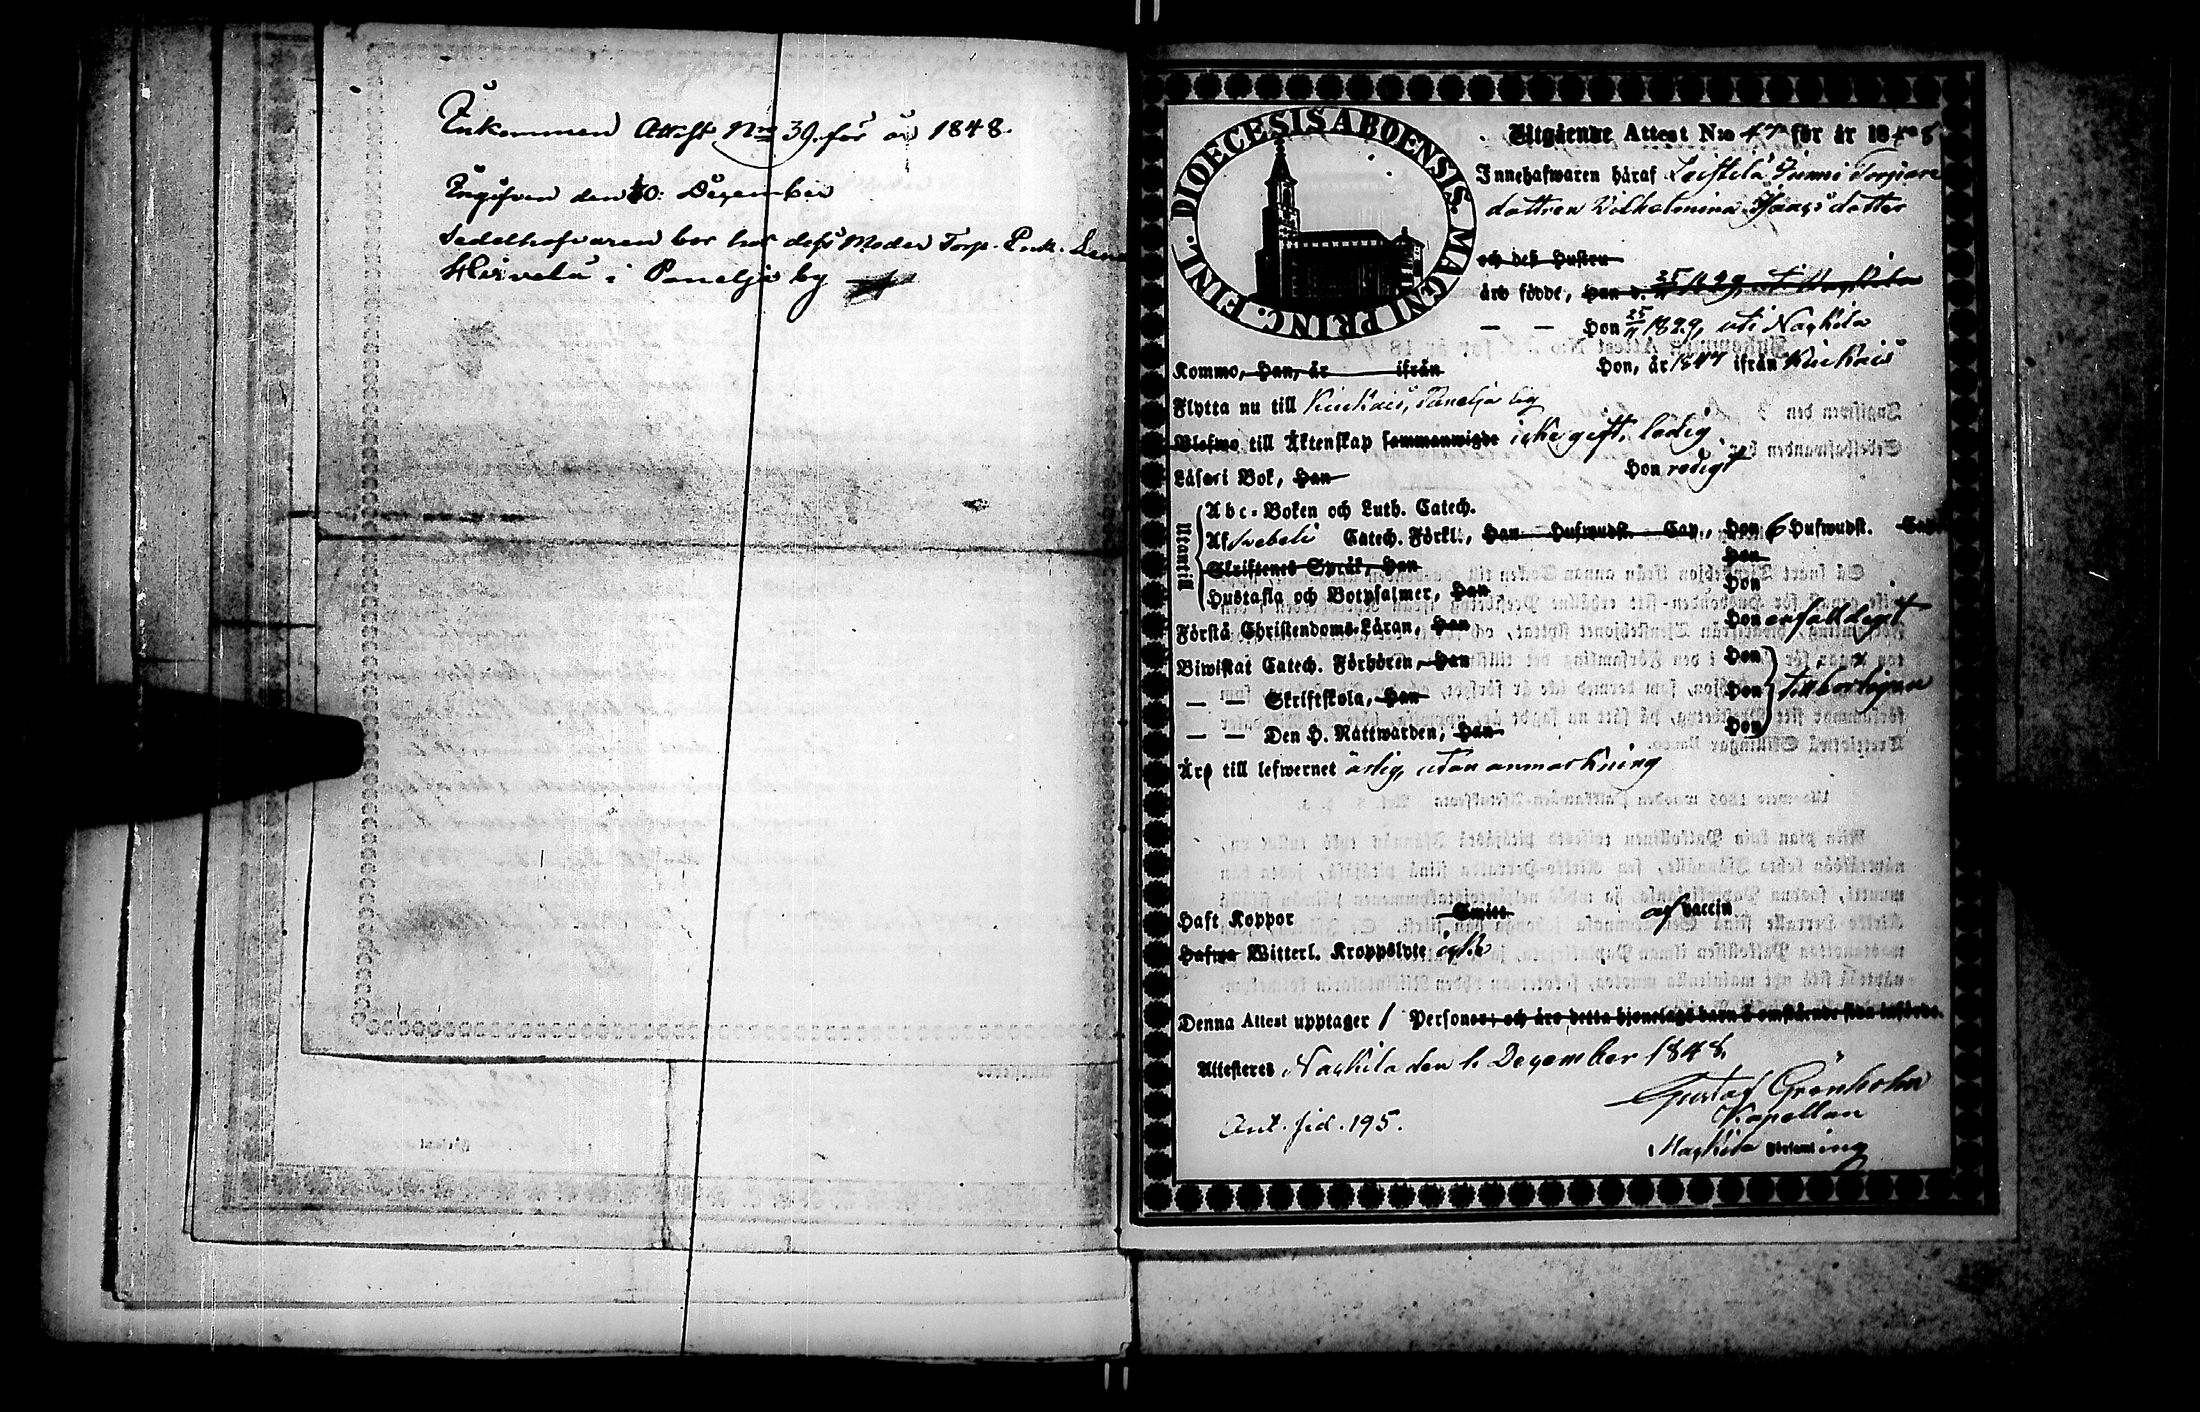 Inkommen Attest Nro 39. för år 1848.
Ingifven den 10: December
Sedelhafvaren bor hos dess Moder Torp. Enk. Lena
Hirvelä i Panelja by
DIOECESIS ABOENSIS. MAGNI PRINC. FINL.
Utgående Attest N:o 47 för år 1848
Innehafwaren häraf Leistilä Torpare
dottren Wilhelmina Jaacs dotter
och deß Hustru
äro födde, Han d. 25/11 1829, uti Nackila
— — Hon 25/11 1829, uti Nackila
Kommo, Han, år ifrån Hon, år 1847 ifrån Kiukais
Flytta nu till Kiukais, Panelja by
Blefwo till Äktenskap sammanwigde icke gift, ledig
Läser i Bok, Han Hon redigt
Utantill
Abc-Boken och Luth. Catech.
Af Svebeli Catech. Förkl., Han Hufwudst. Cap., Hon 6 Hufwudst. Cap.
Skriftenes Språk, Han Hon
Hustafla och Botpsalmer, Han Hon
Förstå Christendoms-Läran, Han Hon enfaldigt
Biwistat Catech. Förhören, Han Hon
— — Skriftskola, Han Hon tillbörligen
— — Den H. Nattwarden, Han Hon
Äro till lefwernet ärlig, utan anmärkning
Haft Koppor Smitt af vaccin
Hafwa Witterl. Kroppslyte icke
Denna Attest upptager 1 Personer; och äro detta hjonelags barn å omstående sida införde.
Attesteres Nackila den 1. December 1848.
Gustaf Grönholm
Kapellan
Ant. sid. 195.
Nackila Församling